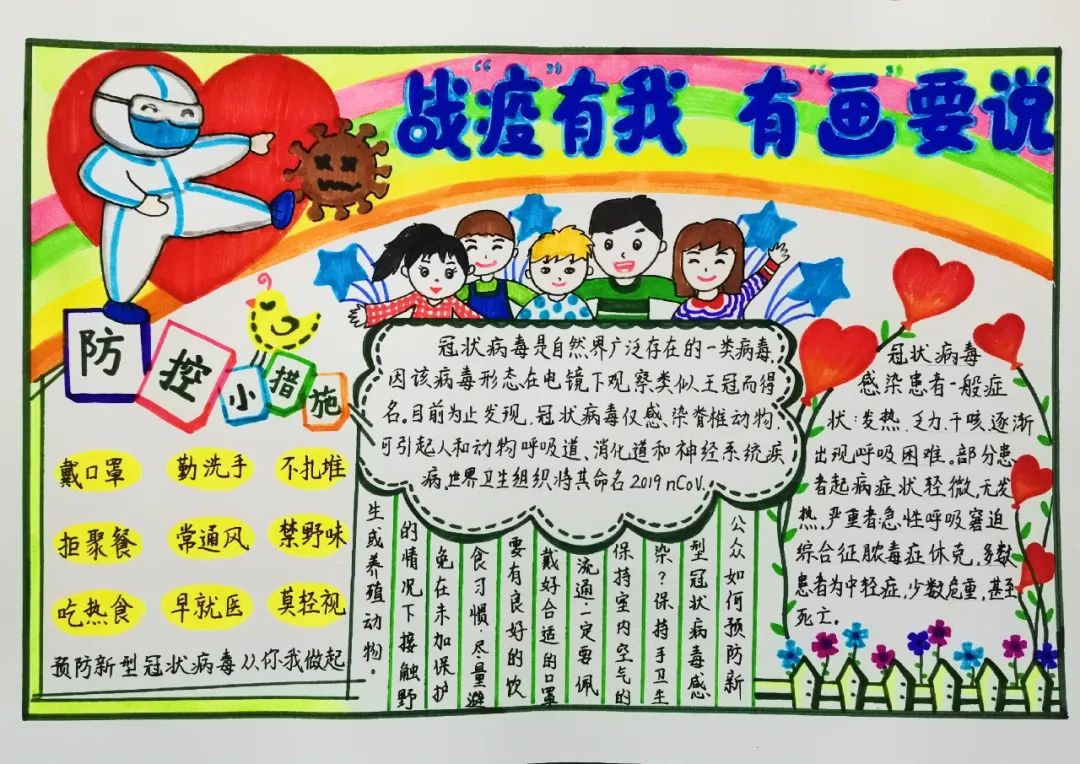 战“疫”有我 有“画”要说
防控小措施
戴口罩 勤洗手 不扎堆
拒聚餐 常通风 禁野味
吃热食 早就医 莫轻视
预防新型冠状病毒从你我做起
冠状病毒是自然界广泛存在的一类病毒,
因该病毒形态在电镜下观察类似王冠而得
名.目前为止发现,冠状病毒仅感染脊椎动物,
可引起人和动物呼吸道、消化道和神经系统疾
病,世界卫生组织将其命名2019 nCoV.
公众如何预防新
型冠状病毒感
染?保持手卫生
保持室内空气的
流通.一定要佩
戴好合适的口罩
要有良好的饮
食习惯.尽量避
免在未加保护
的情况下接触野
生或养殖动物.
冠状病毒
感染患者一般症
状:发热,乏力,干咳,逐渐
出现呼吸困难.部分患
者起病症状轻微,无发
热,严重者急性呼吸窘迫
综合征脓毒症休克,多数
患者为中轻症,少数危重,甚至
死亡.